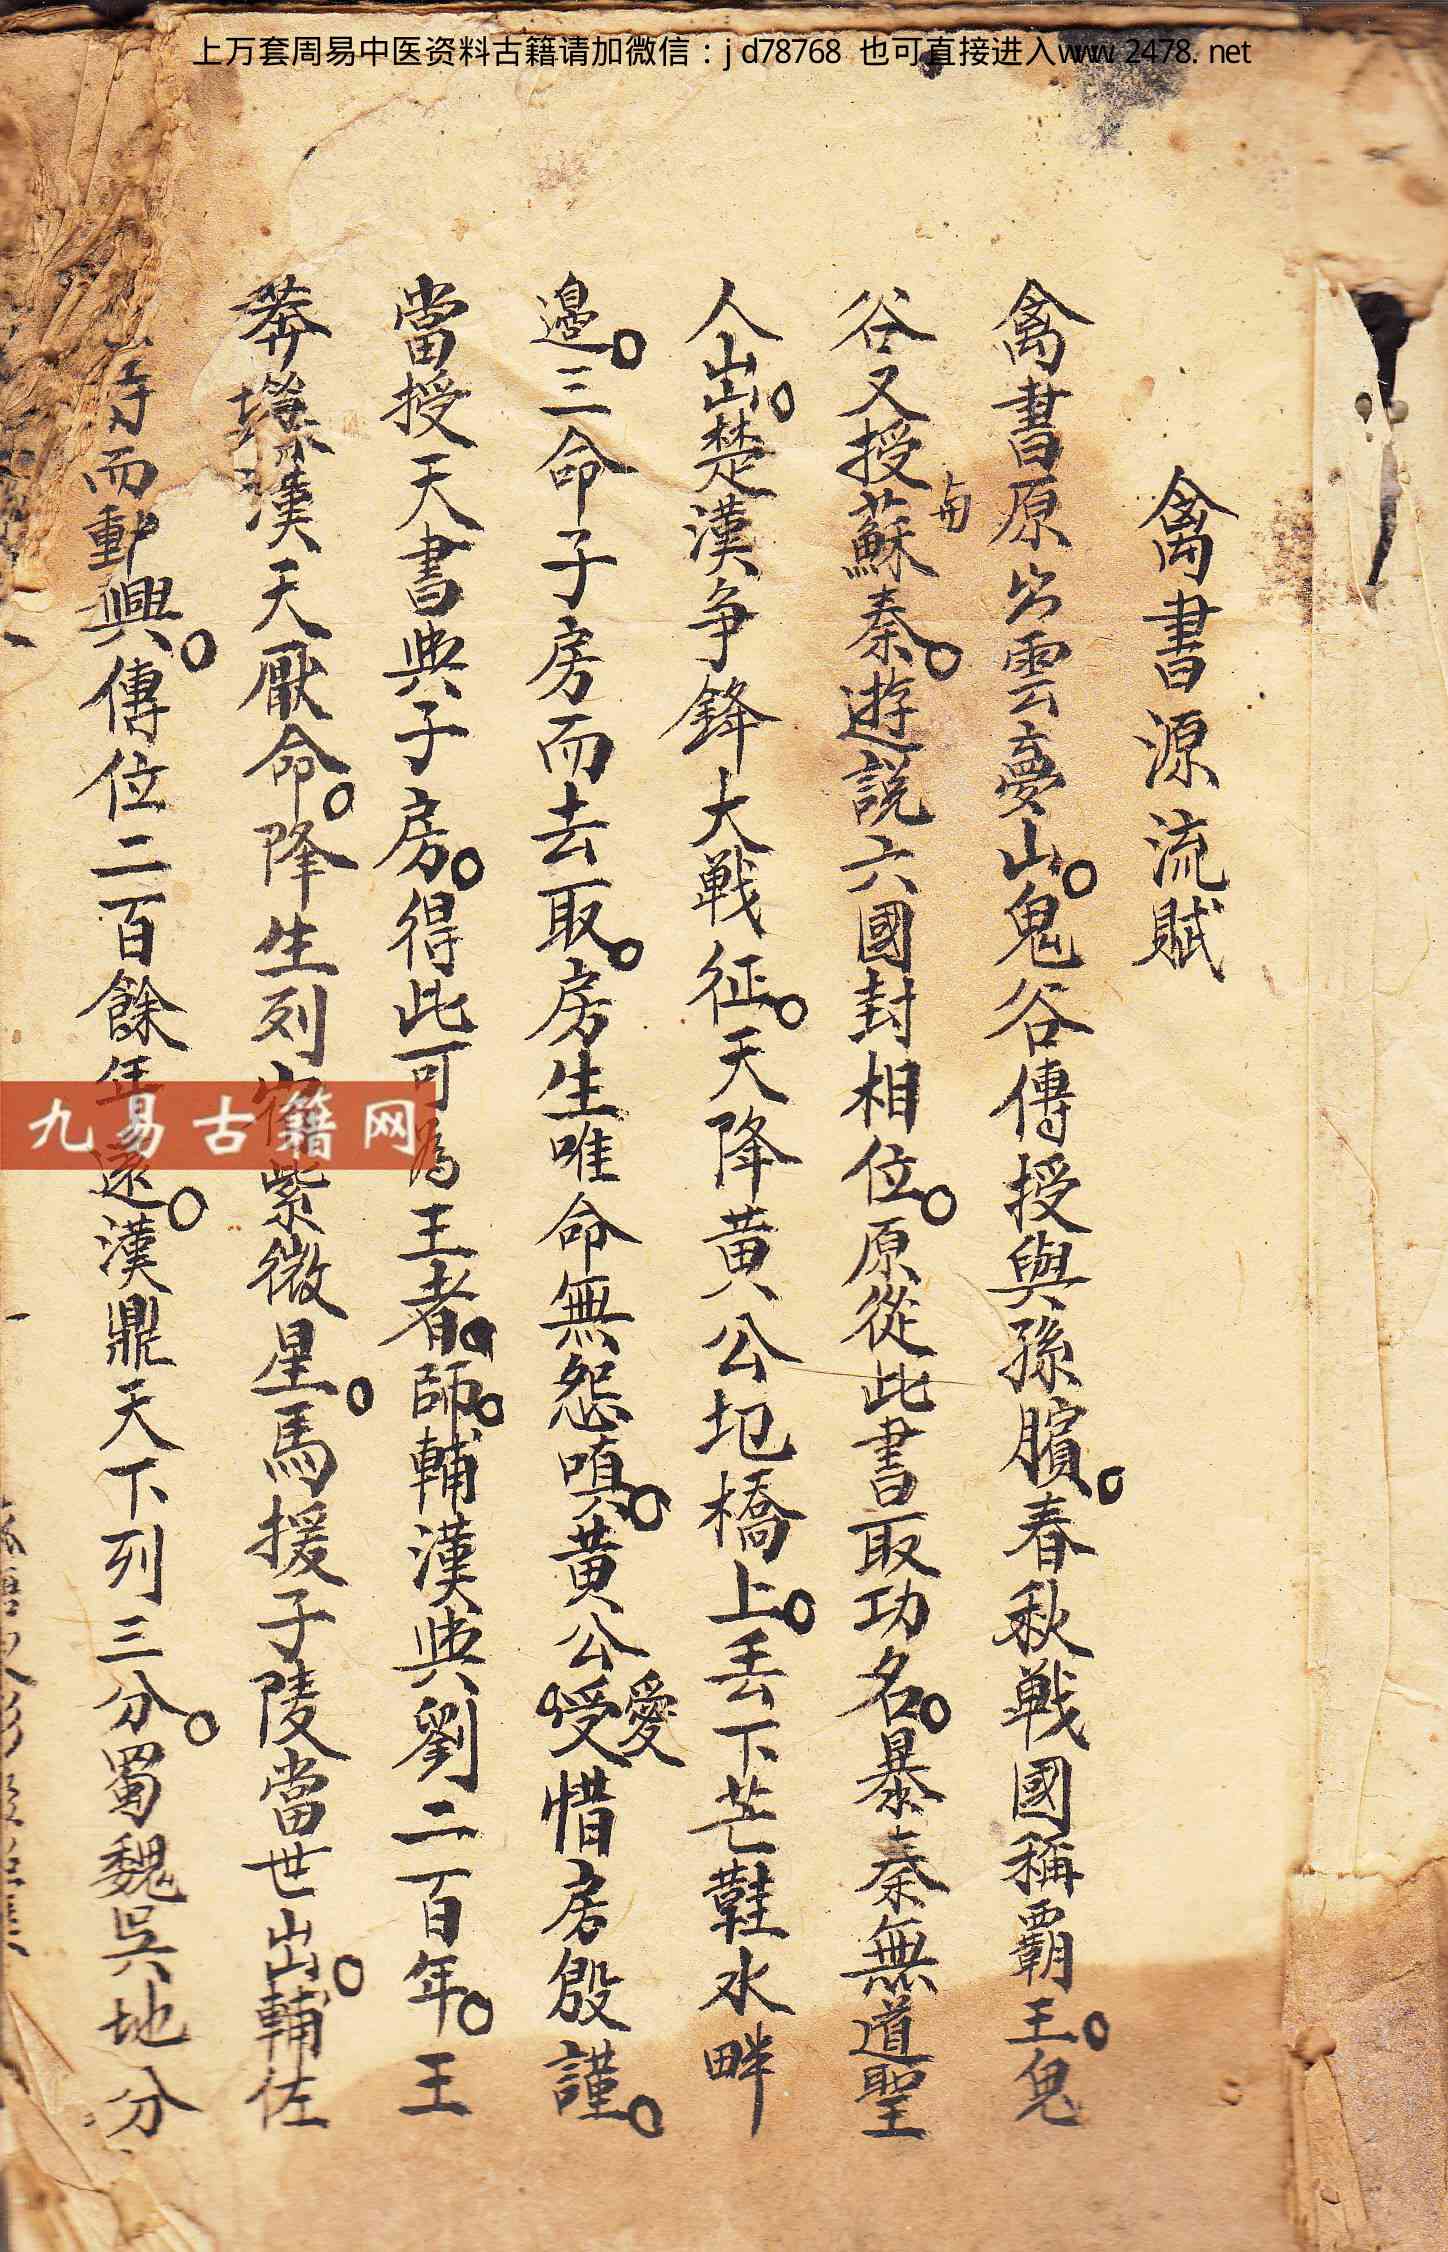 上万套周易中医资料古籍请加微信：jd78768 也可直接进入www.2478.net
禽書源流賦
禽書原出雲夢山。鬼谷傳授與孫臏。春秋戰國稱霸王。鬼
谷又授蘇秦。遊説六國封相位。原從此書取功名。暴秦無道聖
与
人出。楚漢争鋒大戰征。天降黄公圯橋上。丢下芒鞋水畔
邊。三命子房而去取。房生唯命無怨嗔。黄公受惜房殷謹。
愛
當授天書與子房。得此可為王者。師。輔漢與劉二百年。王
莽漢天厭命。降生列宿紫微星。馬援子陵當世出。輔佐
而動興。傳位二百餘年遠。漢鼎天下列三分。蜀魏吳地分
九易古籍网